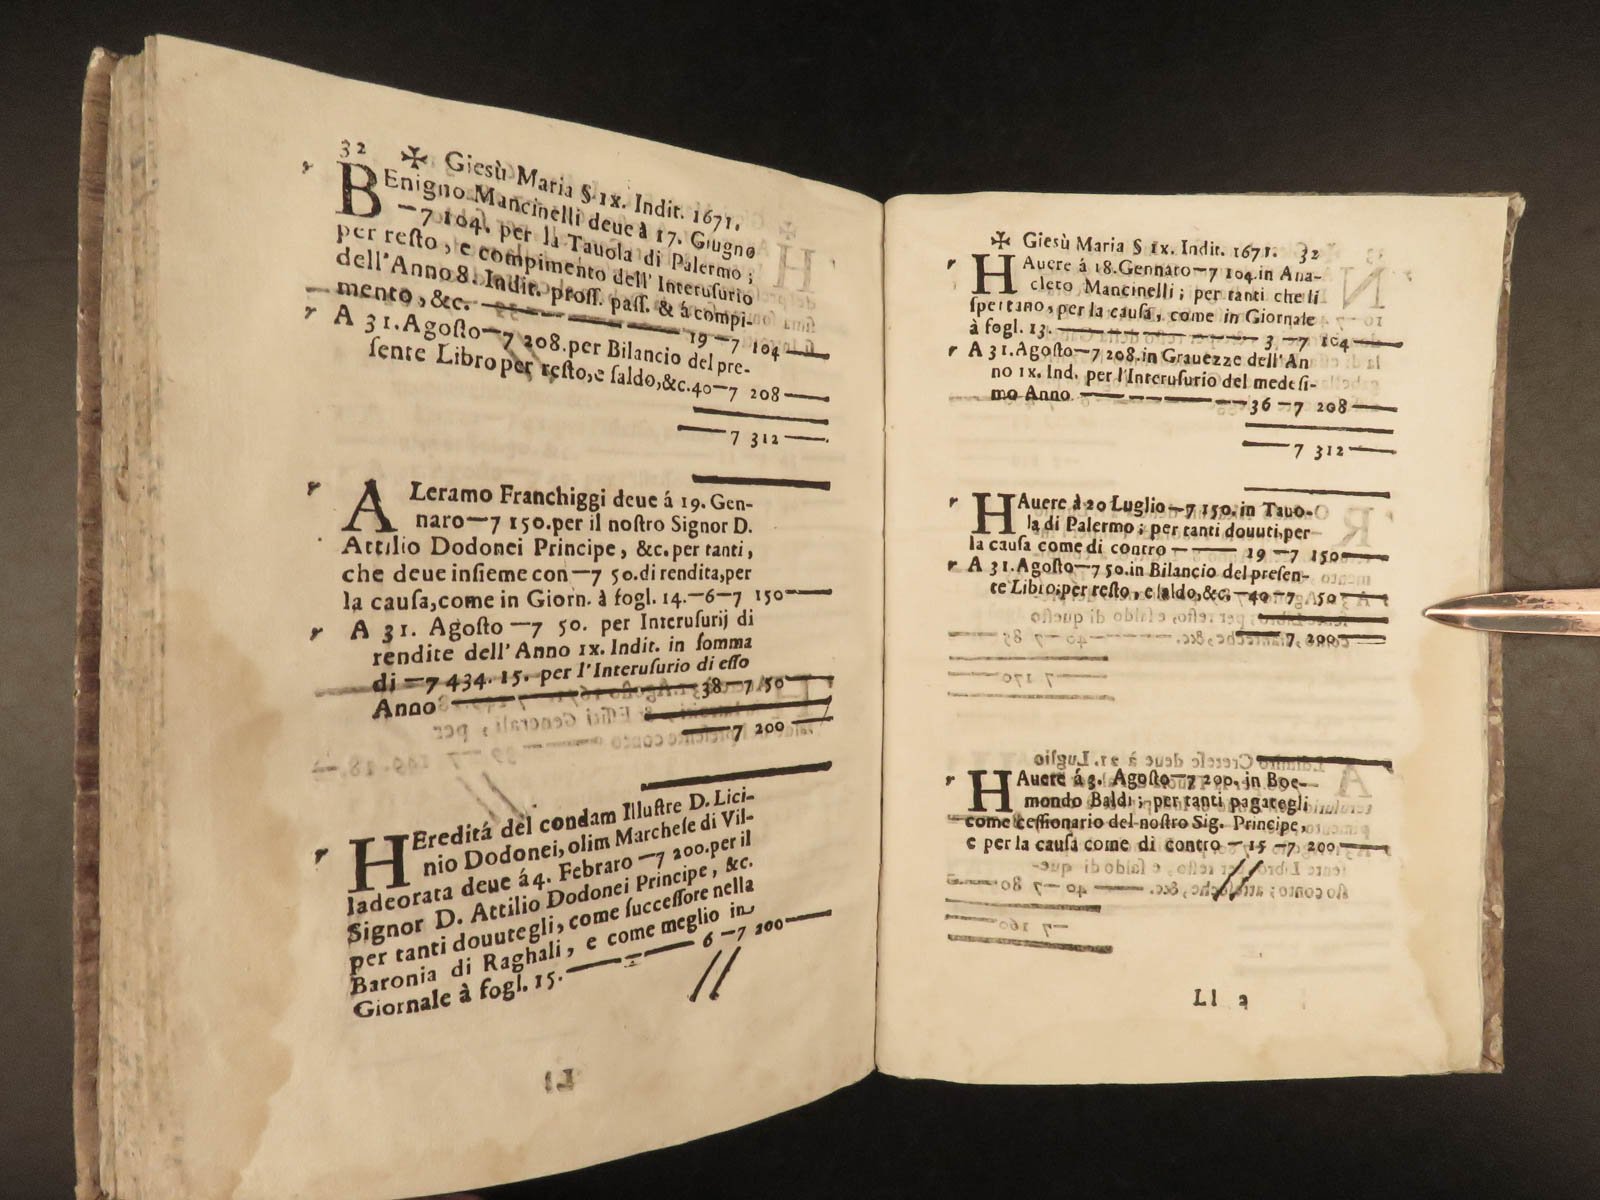 32 ✠ Giesù Maria § IX. Indit. 1671.
BEnigno Mancinelli deue à 17. Giugno
—7 104. per la Tauola di Palermo;
per resto, e compimento dell' Interusurio
dell'Anno 8. Indit. pross. pass. & á compi-
mento, &c. — 19 —7 104 —
r A 31. Agosto —7 208. per Bilancio del pre-
sente Libro per resto, e saldo, &c. 40 —7 208 —
7 312 —
r ALeramo Franchiggi deue á 19. Gen-
naro —7 150. per il nostro Signor D.
Attilio Dodonei Principe, &c. per tanti,
che deue insieme con —7 50. di rendita, per
la causa, come in Giorn. à fogl. 14. —6 —7 150 —
r A 31. Agosto —7 50. per Interusurij di
rendite dell' Anno IX. Indit. in somma
di —7 434. 15. per l'Interusurio di esso
Anno — 38 —7 50 —
7 200 —
r HEreditá del condam Illustre D. Lici-
nio Dodonei, olim Marchese di Vil-
ladeorata deue á 4. Febraro —7 200. per il
Signor D. Attilio Dodonei Principe, &c.
per tanti douutegli, come successore nella
Baronia di Raghali, e come meglio in
Giornale à fogl. 15. — 6 —7 200 —
✠ Giesù Maria § IX. Indit. 1671. 32
r HAuere á 18. Gennaro —7 104. in Ana-
cleto Mancinelli; per tanti che li
spertano, per la causa, come in Giornale
à fogl. 13. — 3 —7 104 —
r A 31. Agosto —7 208. in Grauezze dell'An
no IX. Ind. per l'Interusurio del medesi-
mo Anno — 36 —7 208 —
— 7 312 —
r HAuere à 20 Luglio —7 150. in Tauo-
la di Palermo; per tanti douuti, per
la causa come di contro — 19 —7 150 —
r A 31. Agosto —7 50. in Bilancio del presen-
te Libro; per resto, e saldo, &c. — 40 —7 50 —
7 200 —
r HAuere á 3. Agosto —7 200. in Boe-
mondo Baldi; per tanti pagategli
come cessionario del nostro Sig. Principe,
e per la causa come di contro — 15 —7 200 —
Ll 2